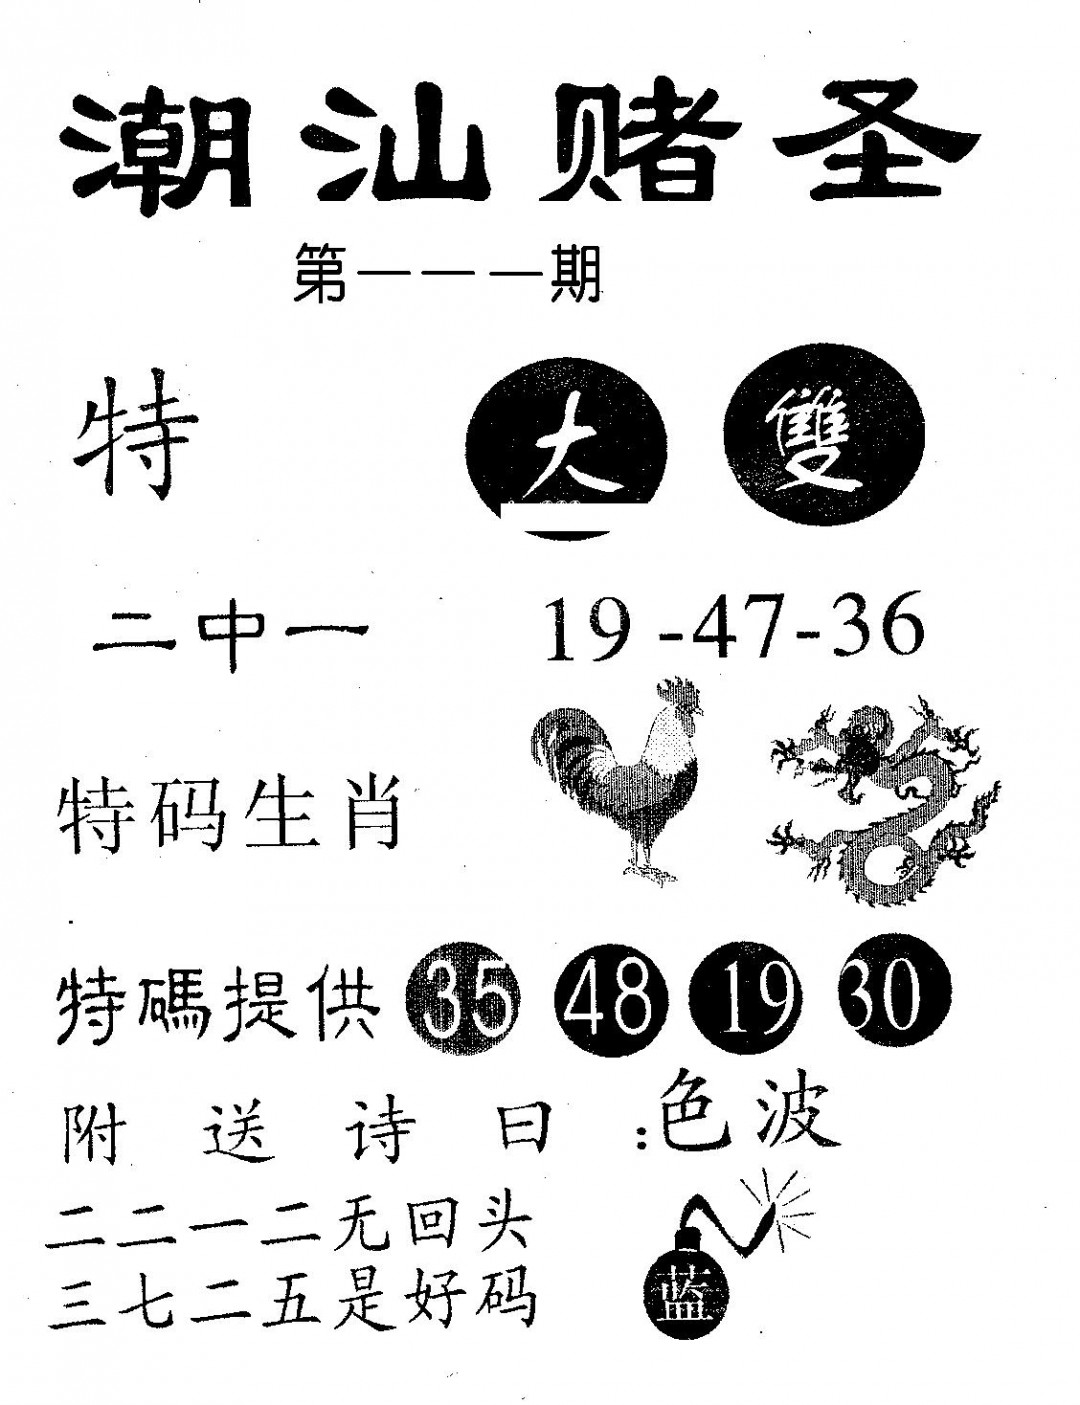 潮汕赌圣
第一一一期
特 大 雙
二中一 19-47-36
特码生肖
特碼提供 35 48 19 30
附送诗曰:色波
二二一二无回头
三七二五是好码
蓝